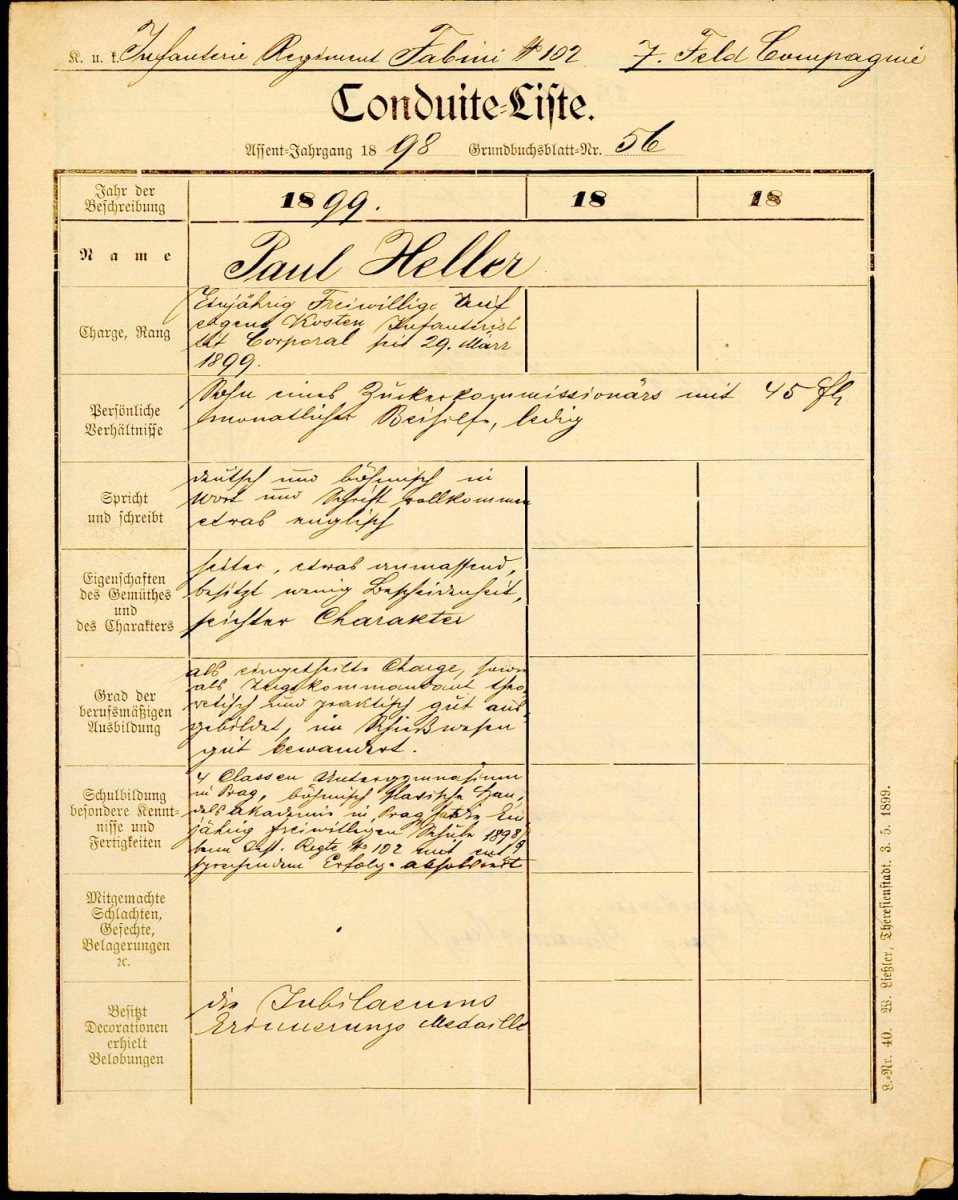 K. u. k. Infanterie Regiment Fabini № 102 7. Feld Compagnie
Conduite-Liste.
Assent-Jahrgang 1898 Grundbuchsblatt-Nr. 56
Jahr der
Beschreibung
1899.
18
18
Name
Paul Heller
Charge, Rang
Einjährig Freiwillige Auf
eigene Kosten Infanterist
tit Corporal seit 29. März
1899.
Persönliche
Verhältnisse
Sohn eines Zuckerkommissionärs mit 45 fl
monatlicher Beihilfe, ledig
Spricht
und schreibt
deutsch und böhmisch in
Wort und Schrift vollkommen
etwas englisch
Eigenschaften
des Gemüthes
und
des Charakters
heiter, etwas anmassend,
besitzt wenig Bescheidenheit,
seichter Charakter
Grad der
berufsmäßigen
Ausbildung
als eingetheilte Charge, sowie
als Zugskommandant theo-
retisch und praktisch gut aus-
gebildet, im Schießwesen
gut bewandert.
Schulbildung
besondere Kennt-
nisse und
Fertigkeiten
4 Classen Untergymnasium
in Prag, böhmisch slavische Han-
dels akademie in Prag hat die Ein-
jährig freiwilligen Schule 1898/9
beim Inft. Regte № 102 mit ent
sprechendem Erfolge absolviert
Mitgemachte
Schlachten,
Gefechte,
Belagerungen
2c.
Besitzt
Decorationen
erhielt
Belobungen
die Jubilaeums
Erinnerungs Medaille
L.-Nr. 40. W. Ließler, Theresienstadt. 3. 5. 1899.